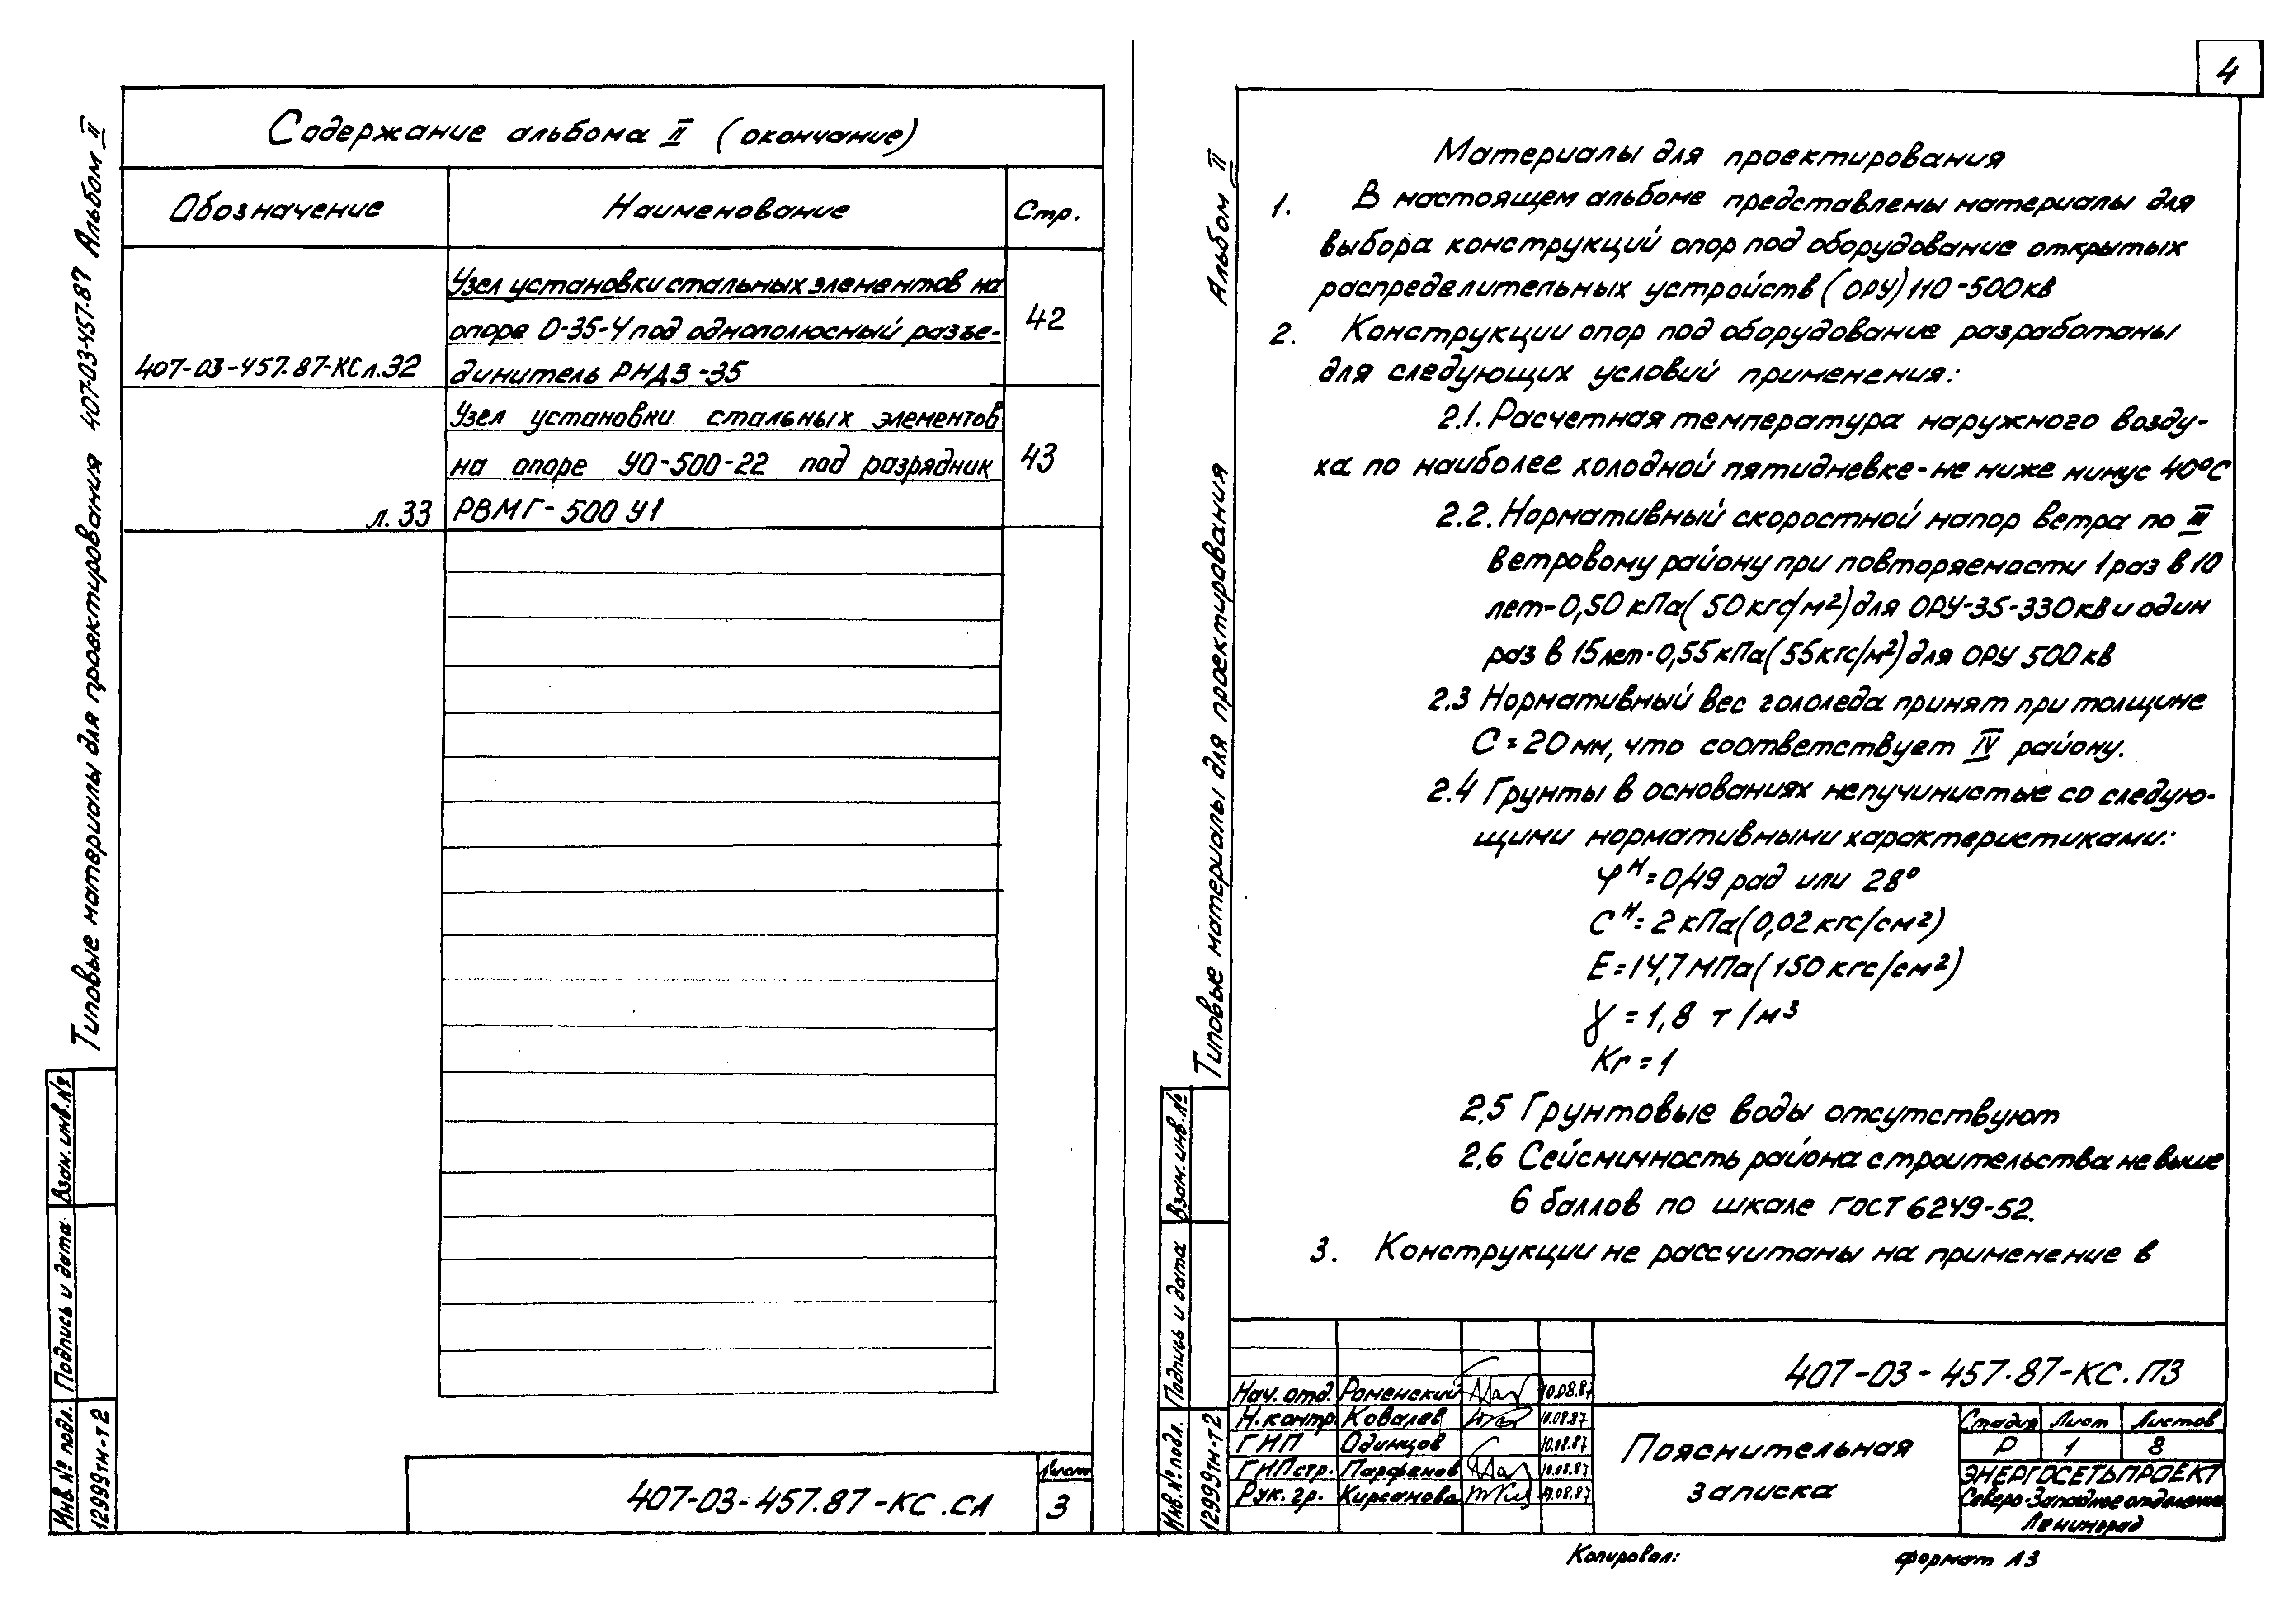 Содержание альбома II (окончание)
Обозначение Наименование Стр.
Узел установки стальных элементов на
опоре О-35-4 под однополюсный разъе-
407-03-457.87-КС л.32 динитель РНДЗ-35 42
Узел установки стальных элементов
на опоре УО-500-22 под разрядник 43
л. 33 РВМГ-500 У1
Типовые материалы для проектирования 407-03-457.87 Альбом II
Взам. инв. №
Подпись и дата
Инв. № подл.
12999тм-т2
407-03-457.87-КС.СА
Лист
3
4
Материалы для проектирования
1. В настоящем альбоме представлены материалы для
выбора конструкций опор под оборудование открытых
распределительных устройств (ОРУ) 110-500кв
2. Конструкции опор под оборудование разработаны
для следующих условий применения:
2.1. Расчетная температура наружного возду-
ха по наиболее холодной пятидневке-не ниже минус 40°С
2.2. Нормативный скоростной напор ветра по III
ветровому району при повторяемости 1 раз в 10
лет-0,50 кПа (50 кгс/м²) для ОРУ-35-330 кв и один
раз в 15 лет-0,55 кПа (55 кгс/м²) для ОРУ 500 кв
2.3 Нормативный вес гололеда принят при толщине
С=20 мм, что соответствует IV району.
2.4 Грунты в основаниях непучинистые со следую-
щими нормативными характеристиками:
φᴴ=0,49 рад или 28°
Сᴴ=2 кПа (0,02 кгс/см²)
Е=14,7 МПа (150 кгс/см²)
γ = 1,8 т/м³
Кг = 1
2.5 Грунтовые воды отсутствуют
2.6 Сейсмичность района строительства не выше
6 баллов по шкале ГОСТ 6249-52.
3. Конструкции не рассчитаны на применение в
Типовые материалы для проектирования Альбом II
Взам. инв. №
Подпись и дата
Инв. № подл.
12999тм-т2
407-03-457.87-КС.ПЗ
Нач. отд. Роменский 10.08.87
Н. контр. Ковалев 10.08.87
ГИП Одинцов 10.08.87
ГИП стр. Парфенов 10.08.87
Рук. гр. Кирсанова 10.08.87
Пояснительная
записка
Стадия Лист Листов
Р 1 8
ЭНЕРГОСЕТЬПРОЕКТ
Северо-Западное отделение
Ленинград
Копировал: формат А3